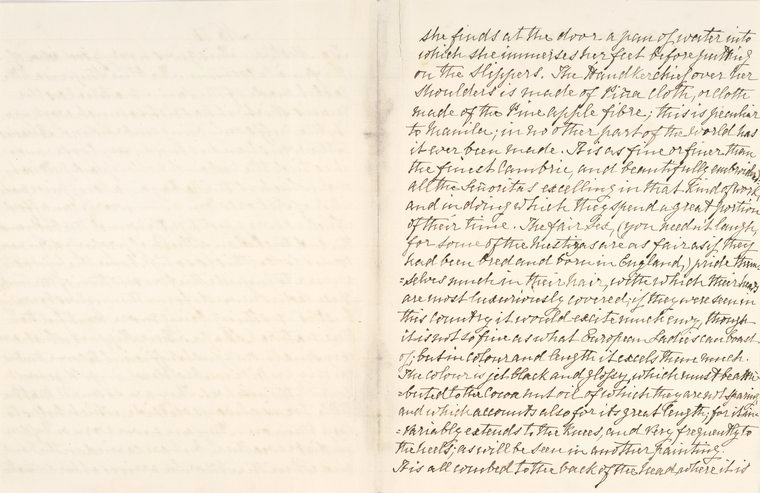 she finds at the door a pan of water into
which she immerses her feet before putting
on the slippers. The Handkerchief over her
shoulders is made of Pina Cloth, or Cloth
made of the Pine apple fibre; this is peculiar
to Manila; in no other part of the World has
it ever been made. It is as fine or finer than
the finest Cambric, and beautifully embroider'd
all the Senoritas excelling in that kind of work,
and in doing which they spend a great portion
of their time. The fair Sex, (you need n't laugh,
for some of the Mestizas are as fair as if they
had been bred and born in England,) pride them
=selves much in their hair, with which their heads
are most luxuriously covered; if they were seen in
this country it would excite much envy, though
it is not so fine as what European Ladies can boast
of; but in colour and length it excels them much.
The colour is jet black and glossy, which must be attri
=buted to the Cocoa nut oil of which they are not sparing
and which accounts also for its great length; for it in
=variably extends to the knees, and very frequently to
the heels; as will be seen in another painting.
It is all combed to the back of the head where it is